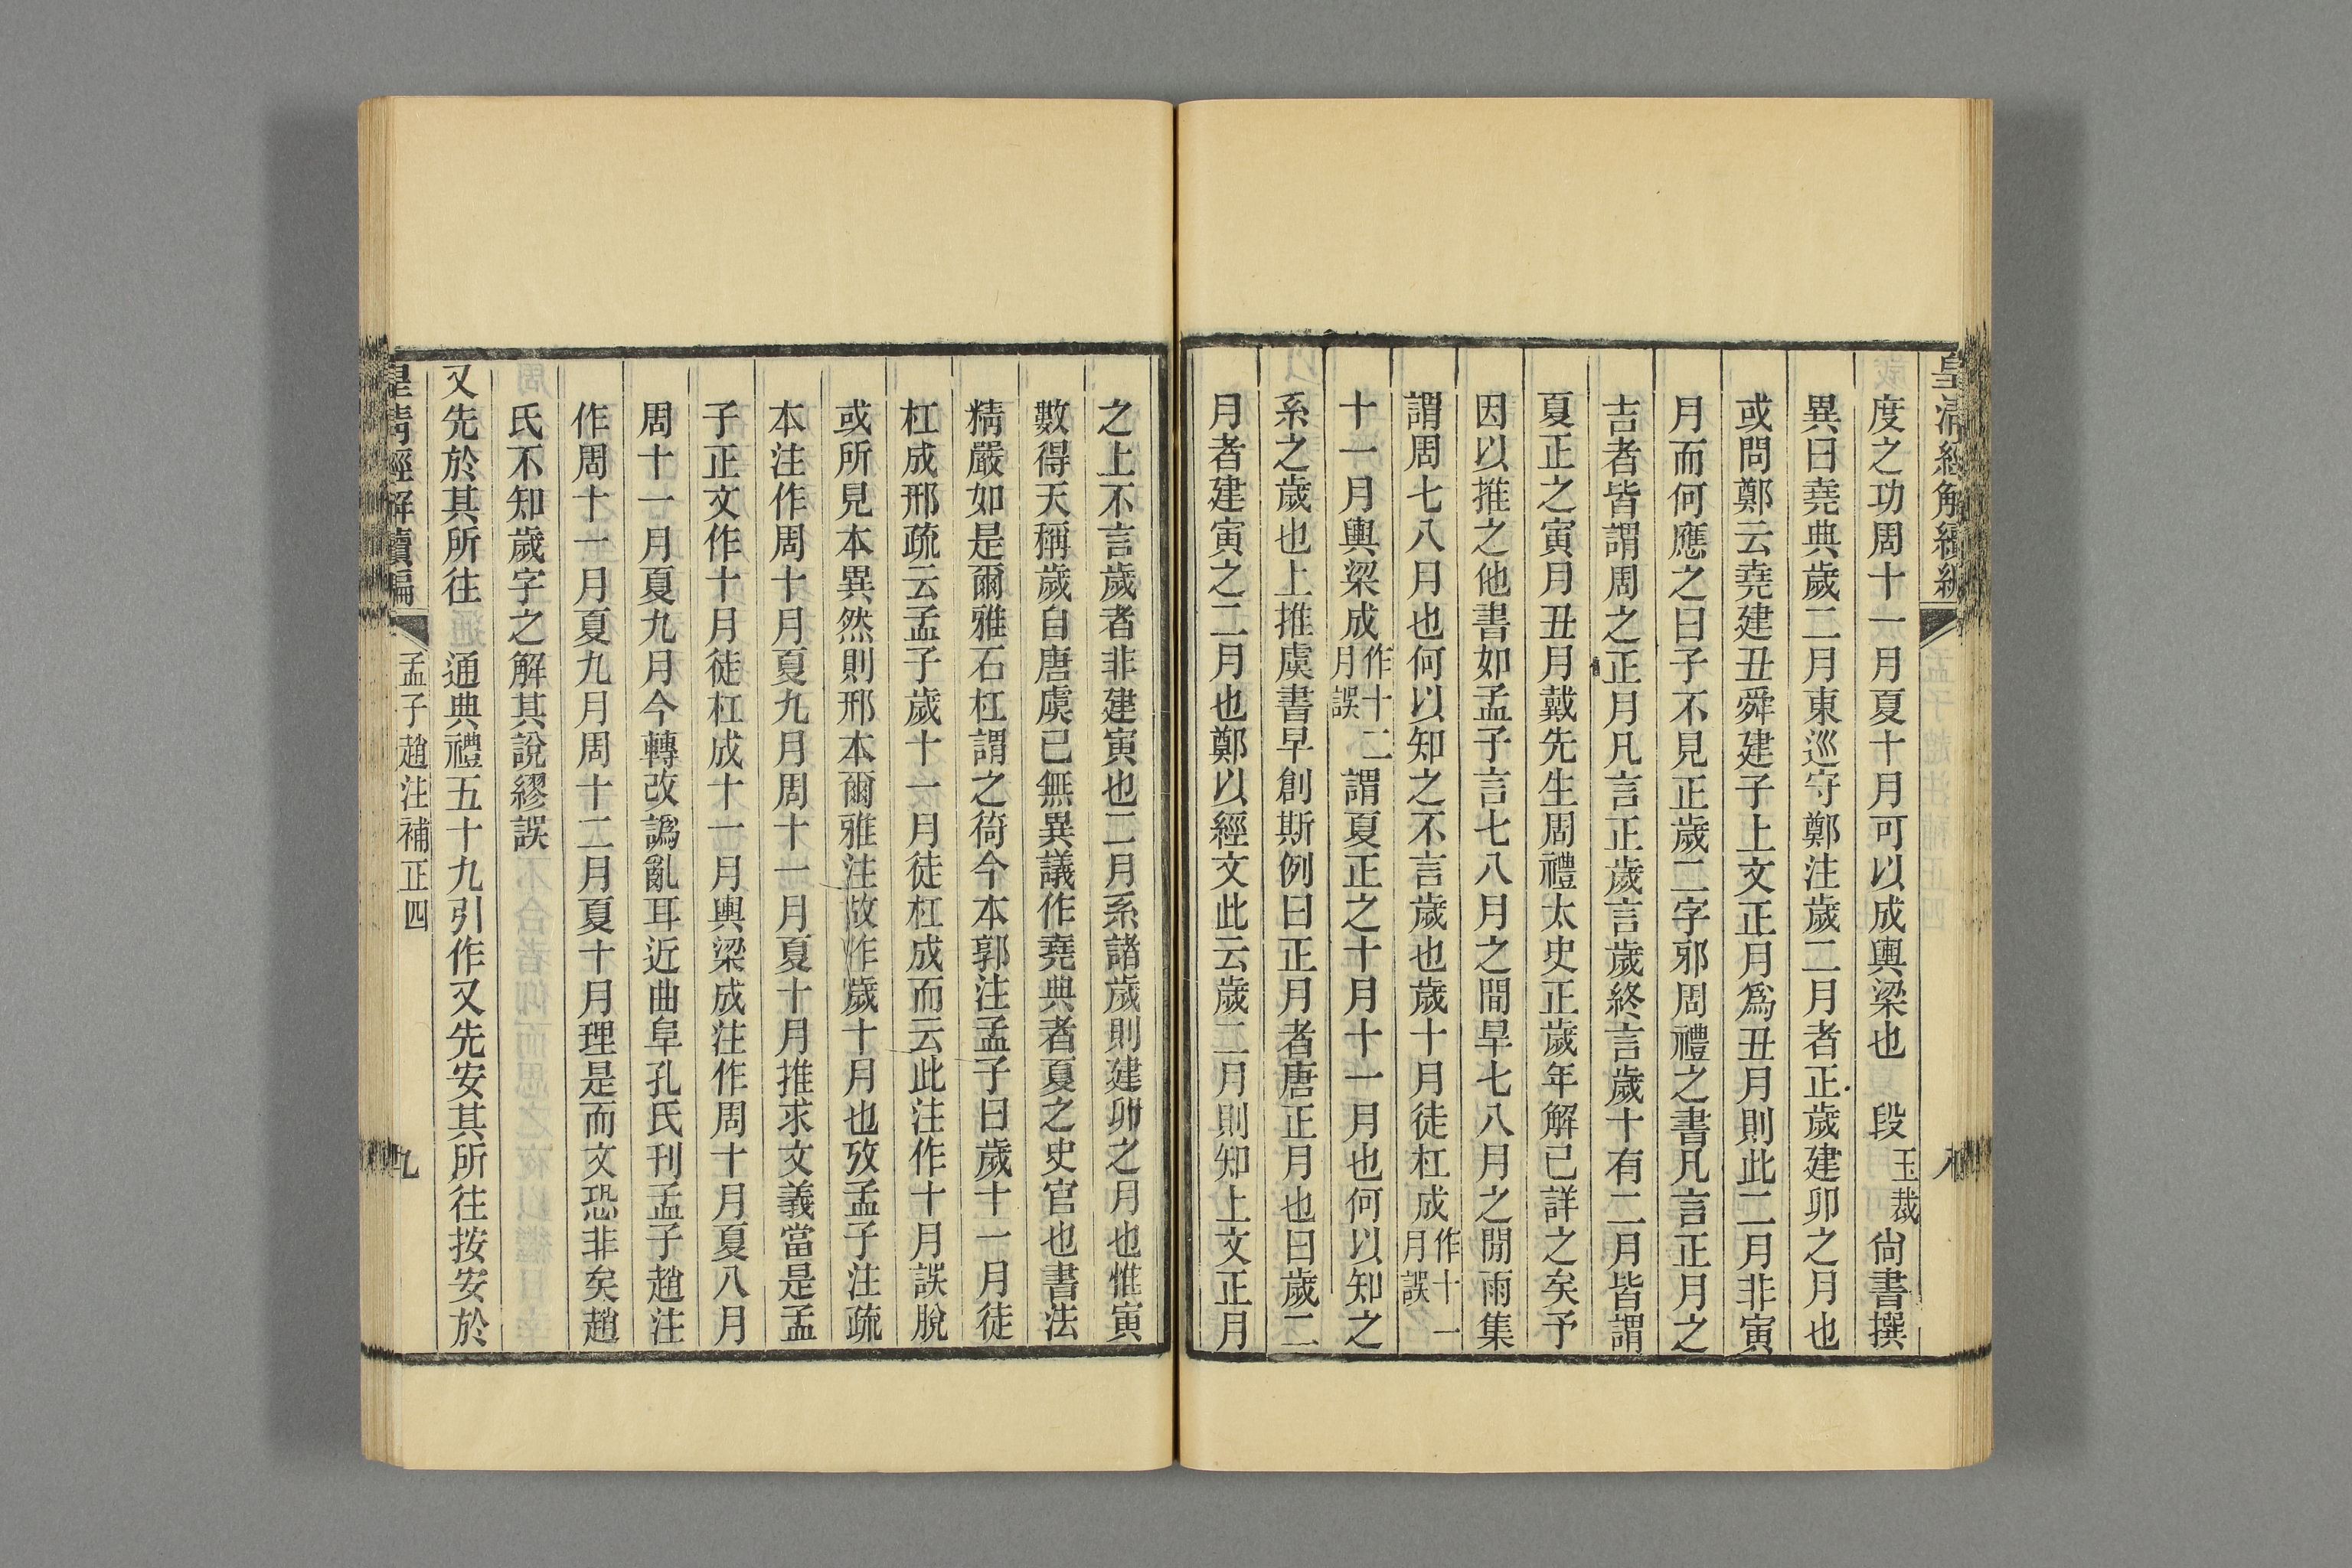 皇清經解續編
八
度之功周十一月夏十月可以成輿梁也　段玉裁尙書撰
異曰堯典歲二月東巡守鄭注歲二月者正歲建卯之月也
或問鄭云堯建丑舜建子上文正月爲丑月則此二月非寅
月而何應之曰子不見正歲二字邪周禮之書凡言正月之
吉者皆謂周之正月凡言正歲言歲終言歲十有二月皆謂
夏正之寅月丑月戴先生周禮太史正歲年解已詳之矣予
因以推之他書如孟子言七八月之間旱七八月之閒雨集
謂周七八月也何以知之不言歲也歲十月徒杠成作十一月誤
十一月輿梁成作十二月誤謂夏正之十月十一月也何以知之
系之歲也上推虞書早創斯例曰正月者唐正月也曰歲二
月者建寅之二月也鄭以經文此云歲二月則知上文正月
之上不言歲者非建寅也二月系諸歲則建卯之月也惟寅
數得天稱歲自唐虞已無異議作堯典者夏之史官也書法
精嚴如是爾雅石杠謂之徛今本郭注孟子曰歲十一月徒
杠成邢疏云孟子歲十一月徒杠成而云此注作十月誤脫
或所見本異然則邢本爾雅注故作歲十月也攷孟子注疏
本注作周十月夏九月周十一月夏十月推求文義當是孟
子正文作十月徒杠成十一月輿梁成注作周十月夏八月
周十一月夏九月今轉改譌亂耳近曲阜孔氏刊孟子趙注
作周十一月夏九月周十二月夏十月理是而文恐非矣趙
氏不知歲字之解其說繆誤
又先於其所往　通典禮五十九引作又先安其所往按安於
皇清經解續編
孟子趙注補正四
九